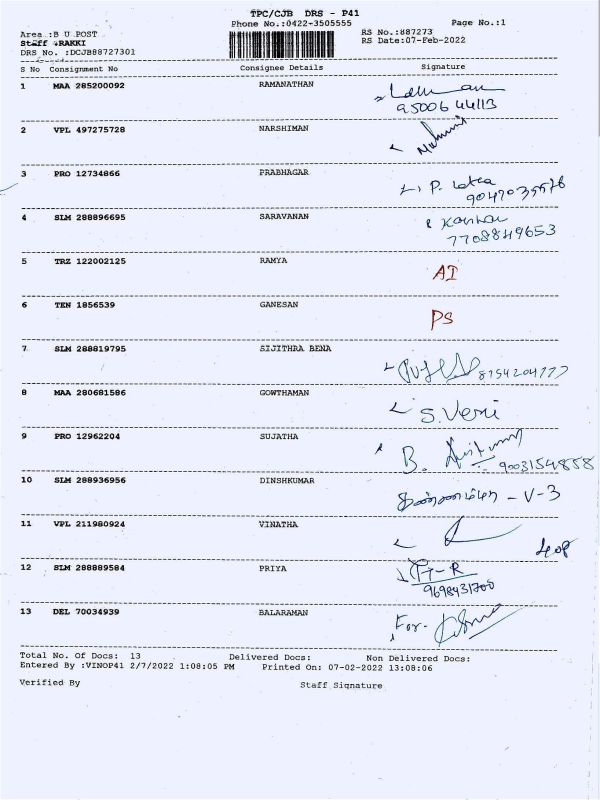 TPC/CJB DRS - P41
Phone No.:0422-3505555 Page No.:1
Area :B U POST RS No.:887273
Staff :RAKKI RS Date:07-Feb-2022
DRS No. :DCJB88727301
S No Consignment No Consignee Details Signature
1 MAA 285200092 RAMANATHAN
9500644113
2 VPL 497275728 NARSHIMAN
3 PRO 12734866 PRABHAGAR
P. Latea
4 SLM 288896695 SARAVANAN
7708849653
5 TRZ 122002125 RAMYA AI
6 TEN 1856539 GANESAN PS
7 SLM 288819795 SIJITHRA BENA
8 MAA 280681586 GOWTHAMAN S. Veni
9 PRO 12962204 SUJATHA B.
9003154858
10 SLM 288936956 DINSHKUMAR - V-3
11 VPL 211980924 VINATHA
12 SLM 288889584 PRIYA
13 DEL 70034939 BALARAMAN For-
Total No. Of Docs: 13 Delivered Docs: Non Delivered Docs:
Entered By :VINOP41 2/7/2022 1:08:05 PM Printed On: 07-02-2022 13:08:06
Verified By Staff Signature